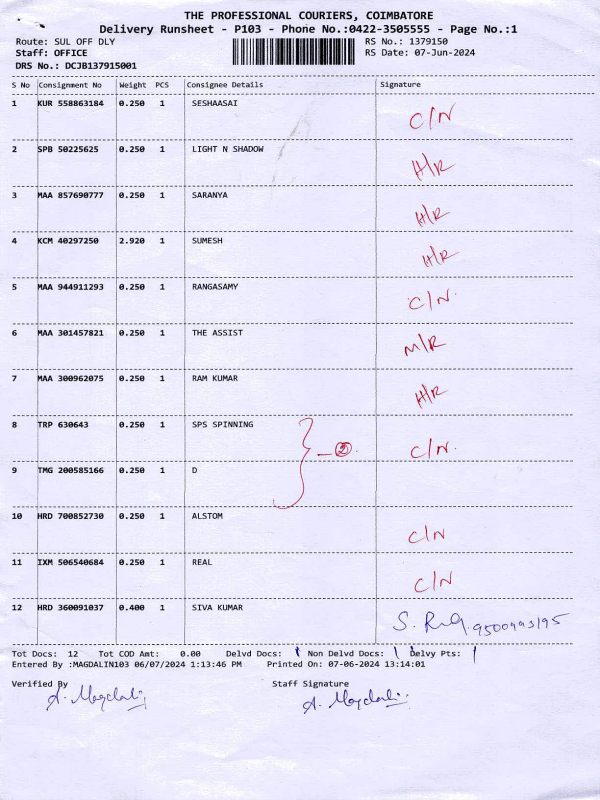 THE PROFESSIONAL COURIERS, COIMBATORE
Delivery Runsheet - P103 - Phone No.:0422-3505555 - Page No.:1
Route: SUL OFF DLY RS No.: 1379150
Staff: OFFICE RS Date: 07-Jun-2024
DRS No.: DCJB137915001
S No Consignment No Weight PCS Consignee Details Signature
1 KUR 558863184 0.250 1 SESHAASAI C/N
2 SPB 50225625 0.250 1 LIGHT N SHADOW H/R
3 MAA 857690777 0.250 1 SARANYA H/R
4 KCM 40297250 2.920 1 SUMESH H/R
5 MAA 944911293 0.250 1 RANGASAMY C/N.
6 MAA 301457821 0.250 1 THE ASSIST M/R
7 MAA 300962075 0.250 1 RAM KUMAR H/R
8 TRP 630643 0.250 1 SPS SPINNING - 2 C/N.
9 TMG 200585166 0.250 1 D
10 HRD 700852730 0.250 1 ALSTOM C/N
11 IXM 506540684 0.250 1 REAL C/N
12 HRD 360091037 0.400 1 SIVA KUMAR S.
Tot Docs: 12 Tot COD Amt: 0.00 Delvd Docs: 1 Non Delvd Docs: 11 Delvy Pts: 1
Entered By :MAGDALIN103 06/07/2024 1:13:46 PM Printed On: 07-06-2024 13:14:01
Verified By Staff Signature
A. Magdalin A. Magdalin